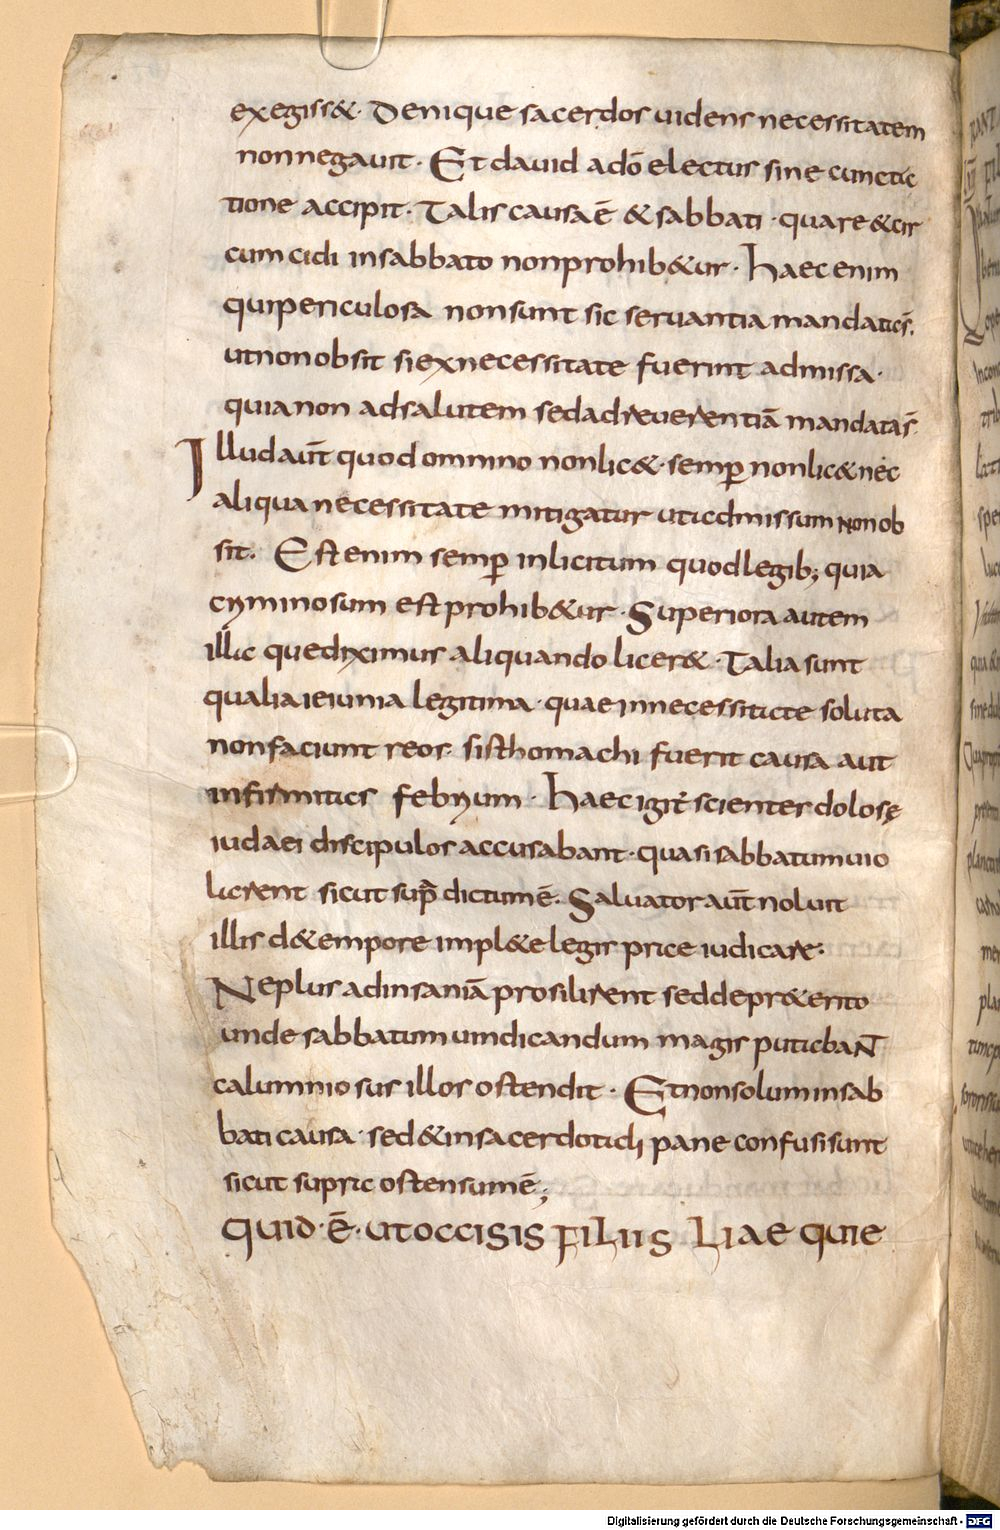 exegiss&. Denique sacerdos uidens necessitatem
non negauit. Et dauid a dõ electus sine cuncta
tione accipit. Talis causa ē & sabbati · quare & cir
cumcidi in sabbato non prohib&ur. Haec enim
qui periculosa non sunt sic seruantia mandatis.
ut non obsit si ex necessitate fuerint admissa.
quia non ad salutem sed ad reuerentiã
Illud aut̄ quod omnino non lic& semp̱ non lic& nec
aliqua necessitate mitigatur ut admissum non ob
sit. Est enim semp̱ inlicitum quod legib; quia
cryminosum est prohib&ur. Superiora autem
illa que diximus aliquando licer&. Talia sunt
qualia ieiunia legitima · quae in necessitate soluta
non faciunt reos. si sthomachi fuerit causa aut
infirmitas febryum. Haec igit̄ scienter dolosę
iudaei discipulos accusabant · quasi sabbatum uio
larent sicut sup̄ dictum ē. Saluator aut̄ noluit
illis d& empore impl&e legis price iudicare.
Ne plus ad insaniã prosilirent sed de pr&erito
unde sabbatum uindicandum magis putabant
calumniosus illos ostendit. Et non solum in sab
bati causa · sed & in sacerdotali pane confusi sunt
sicut supra ostensum ē;
QUID · Ē · UT OCCISIS FILIIS LIAE QUIE
Digitalisierung gefördert durch die Deutsche Forschungsgemeinschaft - DFG